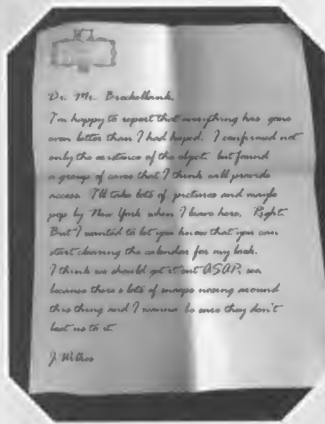 Dr. Mr. Brackelbank,
I'm happy to report that everything has gone
even better than I had hoped. I confirmed not
only the existence of the object but found
a group of caves that I think will provide
access. I'll take lots of pictures and maybe
pop by New York when I leave here. Right.
But I wanted to let you know that you can
start clearing the calendar for my book.
I think we should get it out ASAP,
because there's lots of snoops nosing around
this thing and I wanna be sure they don't
beat us to it.
J. Wilkes